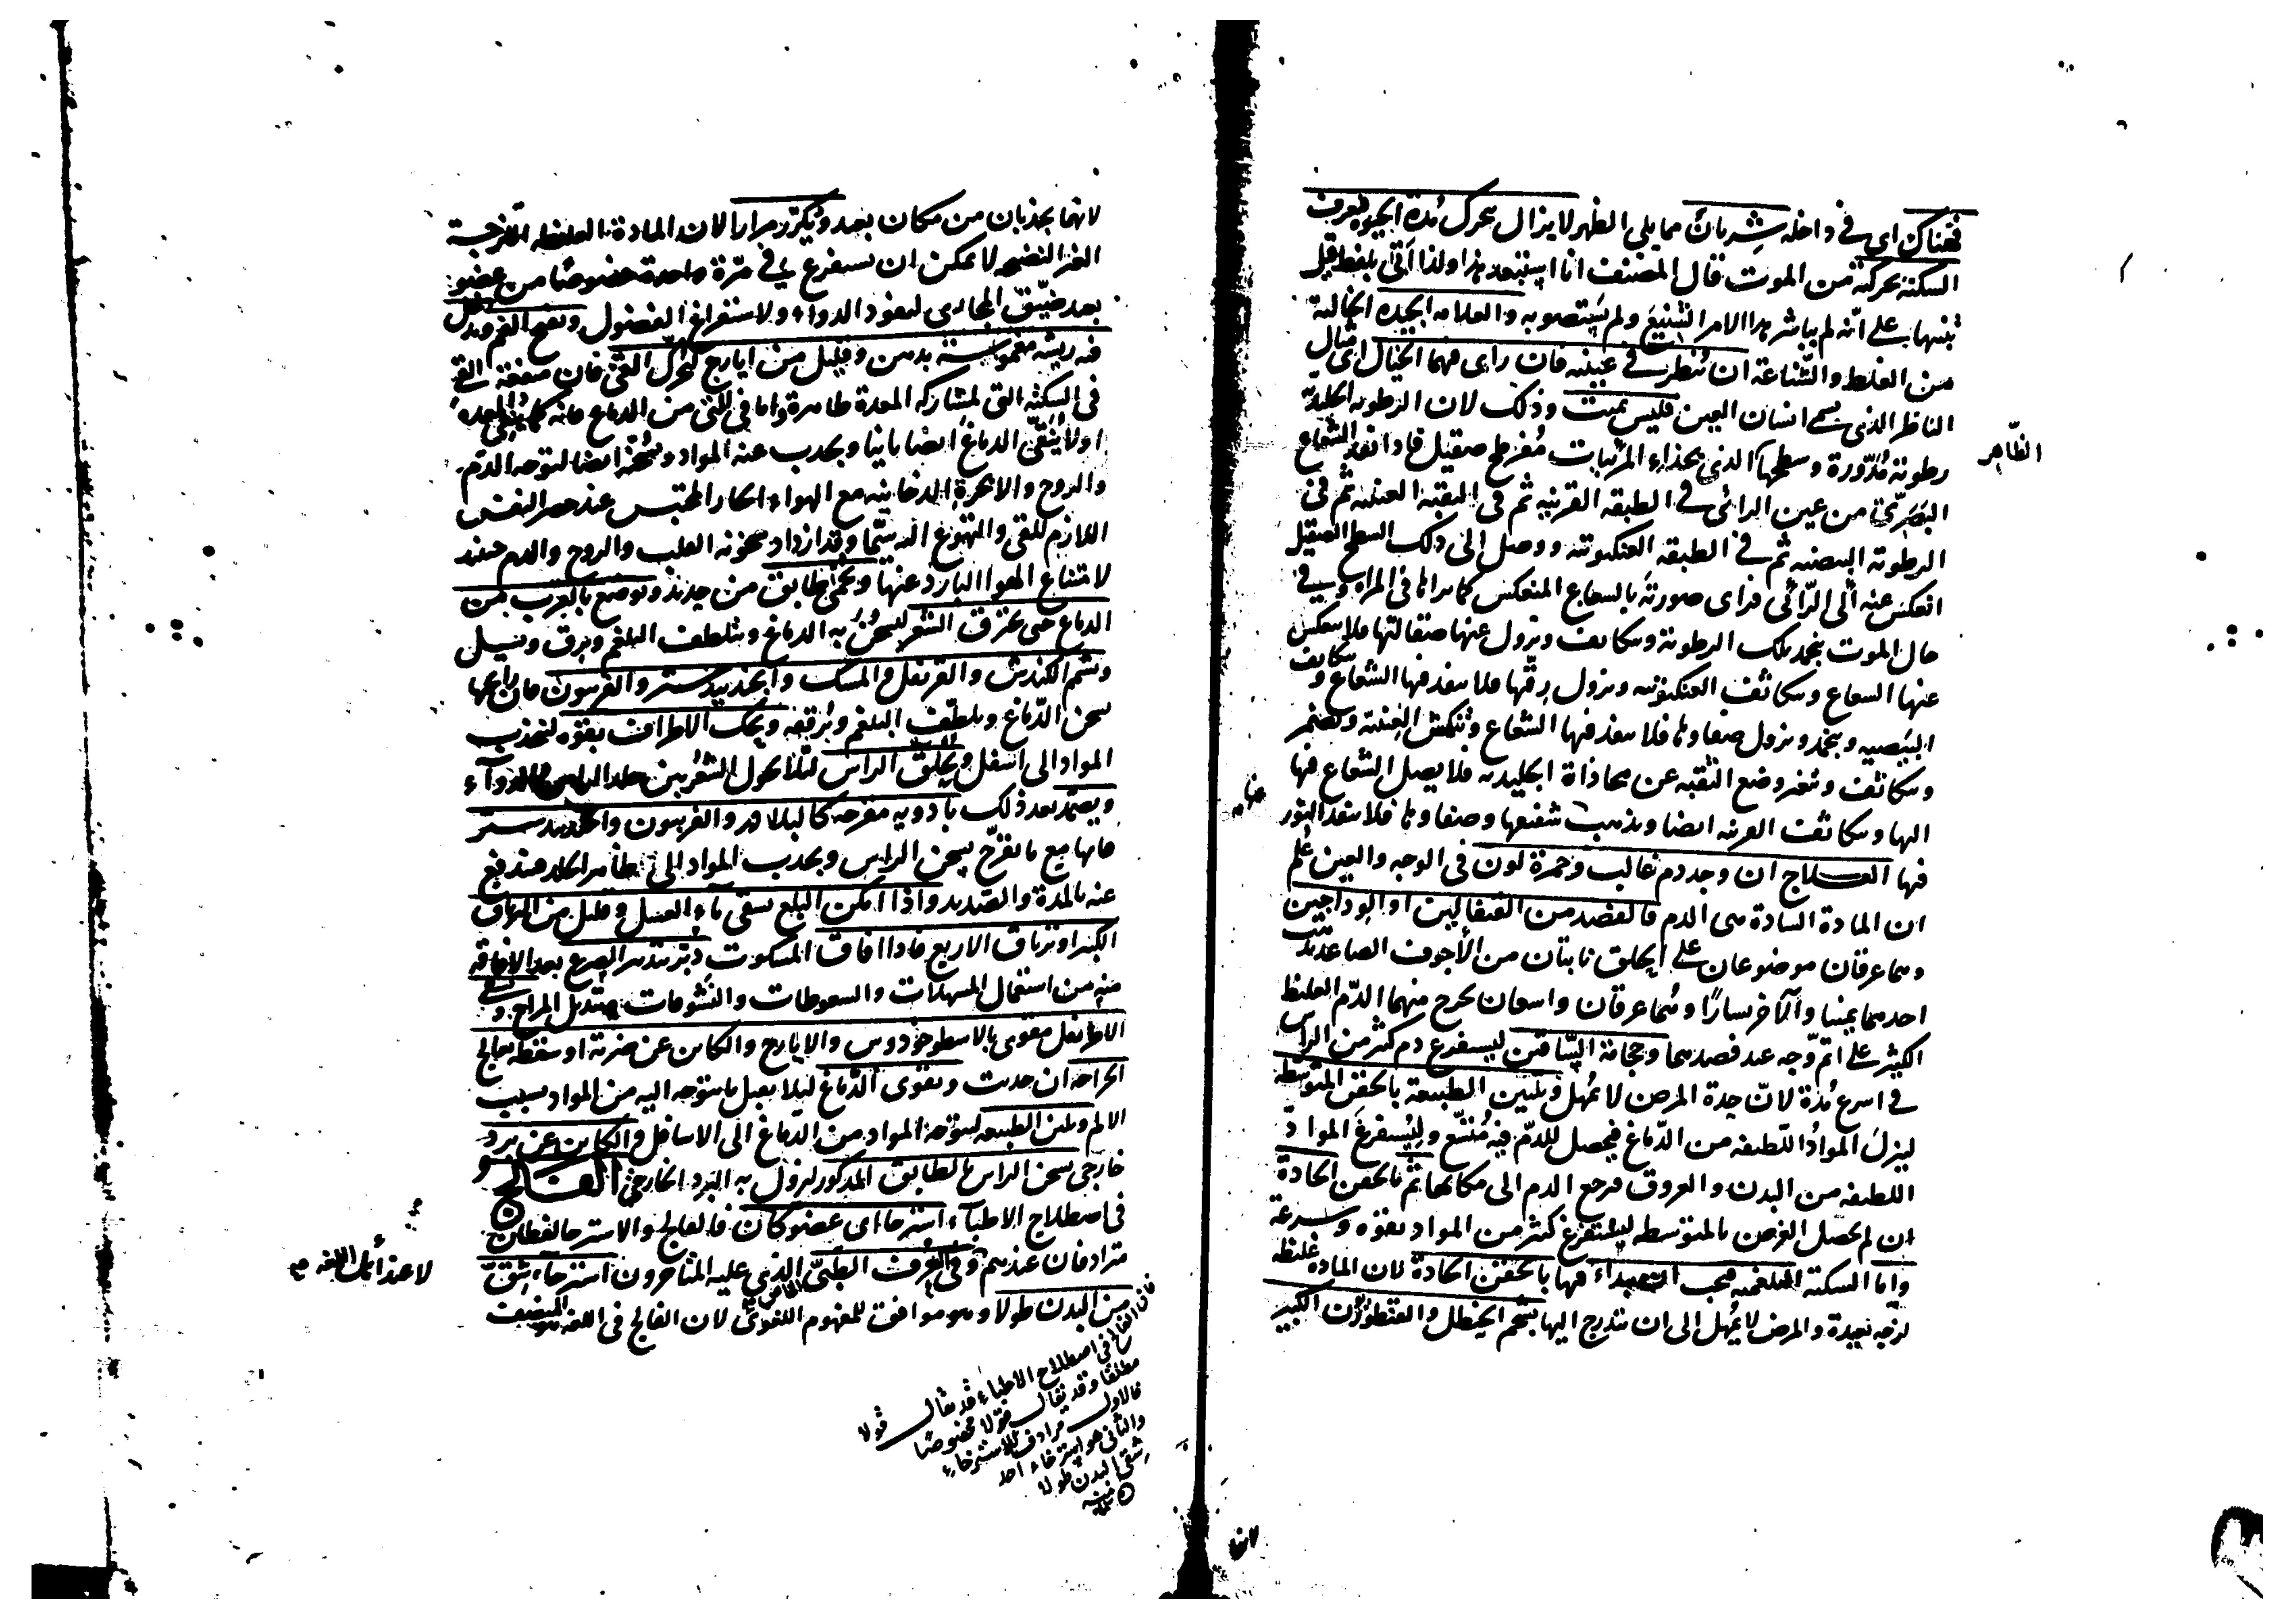 فهناك اى فى داخله شريان مما يلى الظهر لا يزال يتحرك مدة الحيوة فيعرف
السكتة بحركته من الموت قال المصنف انا استبعد هذا ولذا اتى بلفظ قيل
تنبيها على انه لم يباشر هذا الامر الشنيع ولم يستصوبه والعلامة الجيدة الخالية
من الغلط والشناعة ان ينظر فى عينيه فان راى فيهما الخيال اى مثال
الناظر الذى يسمى انسان العين فليس بميت وذلك لان الرطوبة الجليدية
رطوبة مدورة وسطحها الذى بحذاء المرئيات مفرطح صقيل فاذا نفذ الشعاع
الظاهر
البصرى من عين الرائى فى الطبقة القرنية ثم فى الثقبة العنبية ثم فى
الرطوبة البيضية ثم فى الطبقة العنكبوتية ووصل الى ذلك السطح الصقيل
انعكس عنه الى الرائى فراى صورته بالشعاع المنعكس كما يراها فى المراة وفى
حال الموت تجمد تلك الرطوبة وتتكاثف وتزول عنها صقالتها فلا ينعكس
عنها الشعاع وتتكاثف العنكبوتية وتزول رقتها فلا ينفذ فيها الشعاع وتتكاثف
البيضية وتجمد وتزول صفاوتها فلا ينفذ فيها الشعاع وتنكمش العنبية وتضمر
وتتكاثف وتتغير وضع الثقبة عن محاذاة الجليدية فلا يصل الشعاع فيها
اليها وتتكاثف القرنية ايضا ويذهب شفيفها وصفاوتها فلا ينفذ النور
فيها العلاج ان وجد دم غالب وحمرة لون فى الوجه والعين علم
ان المادة السادة هى الدم فالفصد من القيفالين او الوداجين
وهما عرقان موضوعان على الحلق نابتان من الاجوف الصاعد
احدهما يمينا والاخر يسارا وهما عرقان واسعان يخرج منهما الدم الغليظ
الكثير على اتم وجه عند فصدهما وحجامة الساقين ليستفرغ دم كثير من الراس
فى اسرع مدة لان حدة المرض لا تمهل وتليين الطبيعة بالحقن المتوسطة
لينزل المواد اللطيفة من الدماغ فيحصل للدم فيه متسع وليستفرغ المواد
اللطيفة من البدن والعروق فيرجع الدم الى مكانها ثم بالحقن الحادة
ان لم يحصل الغرض بالمتوسطة ليستفرغ كثير من المواد بقوة وسرعة
واما السكتة البلغمية فيجب الابتداء فيها بالحقن الحادة لان المادة غليظة
لزجة بعيدة والمرض لا يمهل الى ان يتدرج اليها بشحم الحنظل والقنطوريون الكبير
لانها
لانهما يجذبان من مكان بعيد ويكرر مرارا لان المادة الغليظة اللزجة
الغير النضيجة لا يمكن ان تستفرغ فى مرة واحدة خصوصا من عضو
بعيد ضيق المجارى لنفوذ الدواء ولاستفراغ الفضول ويفتح الفم ويدخل
فيه ريشة مغموسة بدهن وقليل من ايارج ليحرك القئ فان منفعة القئ
فى السكتة التى لمشاركة المعدة ظاهرة واما فى التى من الدماغ فانه كما ينقى المعدة
اولا ينقى الدماغ ايضا ثانيا ويجذب عنه المواد ويسخنه ايضا لتوجه الدم
والروح والابخرة الدخانية مع الهواء الحار المحتبس عند حصر النفس
اللازم للقى والتهوع اليه سيما وقد ازداد سخونة القلب والروح والدم حينئذ
لامتناع الهوا البارد عنها ويحمى طابق من حديد ويوضع بالقرب من
الدماغ حتى يحترق الشعر ليسخن به الدماغ ويتلطف البلغم ويرق ويسيل
ويشم الكندش والقرنفل والمسك والجندبيدستر والفربيون فان رائحتها
تسخن الدماغ وتلطف البلغم وترققه ويحك الاطراف بقوة لتنجذب
المواد الى اسفل ويحلق الراس لئلا يحول الشعر بين جلد الراس والدواء
ويضمد بعد ذلك بادوية مقرحة كالبلاذر والفربيون والجندبيدستر
فانها مع ما تقرح تسخن الراس وتجذب المواد الى ظاهر الجلد فيندفع
عنه بالمدة والصديد واذا امكن البلع يسقى ماء العسل وقليل من الترياق
الكبير او ترياق الاربع فاذا افاق المسكوت دبر تدبير الصرع بعد الافاقة
منه من استعمال المسهلات والسعوطات والنشوقات وتبديل المزاج وفى
الاطريفل مقوى بالاسطوخودوس والايارج والكاين عن ضربة او سقطة يعالج
الجراحة ان حدثت ويقوى الدماغ ليلا يقبل ما يتوجه اليه من المواد بسبب
الالم ويلين الطبيعة لتوجه المواد من الدماغ الى الاسافل والكاين عن برد
خارجى يسخن الراس بالطابق المذكور ليزول به البرد الخارجى الفالج هو
فى اصطلاح الاطباء استرخا اى عضو كان فالفالج والاسترخا لفظان
مترادفان عندهم وفى العرف الطبى الخاص الذى عليه المتاخرون استرخاء شق
لا عند ائمة اللغة صح
من البدن طولا وهو موافق للمفهوم اللغوى لان الفالج فى اللغة
فان الفالج فى اصطلاح الاطباء قد يقال قولا
مطلقا وقد يقال قولا مخصوصا
فالاول مرادف للاسترخاء
والثانى هو استرخاء احد
شقى البدن طولا
منه